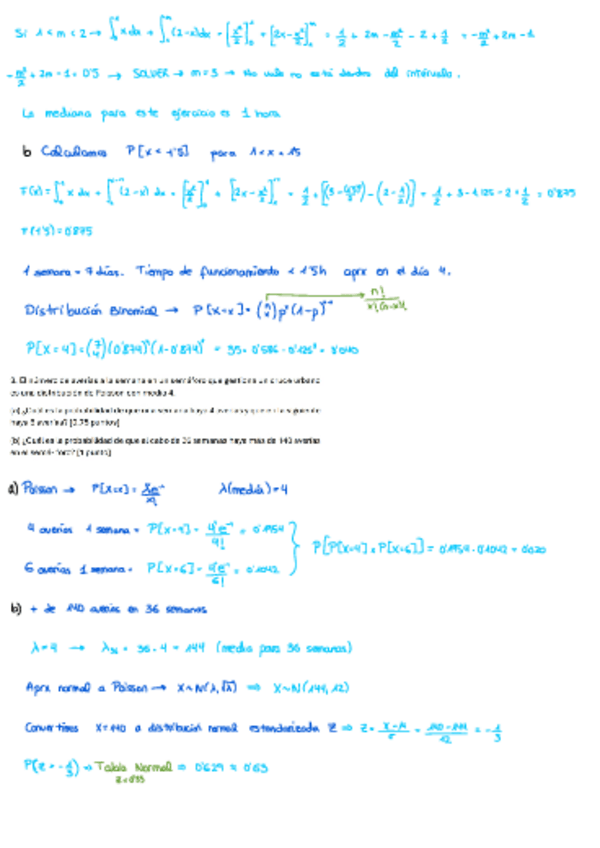 Si 1 < m < 2 → ∫₀¹ x dx + ∫₁ᵐ (2-x)dx = [x²/2]₀¹ + [2x-x²/2]₁ᵐ = 1/2 + 2m - m²/2 - 2 + 1/2 = -m²/2 + 2m - 1
-m²/2 + 2m - 1 = 0'5 → SOLVER → m = 3 → no vale no está dentro del intervalo.
La mediana para este ejercicio es 1 hora
b Calculamos P[x < 1'5] para 1 < x < 1'5
F(x) = ∫₀¹ x dx + ∫ (2-x) dx = [x²/2]₀¹ + [2x-x²/2] = 1/2 + [(3- ) - (2-1/2)] = 1/2 + 3 - 1.125 - 2 + 1/2 = 0'875
F(1'5) = 0'875
1 semana = 7 días. Tiempo de funcionamiento < 1'5h aprx en el día 4.
Distribución Binomial → P[X=x] = (n x) pˣ (1-p)ⁿ⁻ˣ → n!/x!(n-x)!
P[X=4] = (7 4) (0'874)⁴ (1-0'874)³ = 35 · 0'586 · 0'125³ = 0'040
3. El número de averías a la semana en un semáforo que gestiona un cruce urbano
es una distribución de Poisson con media 4.
(a) ¿Cuál es la probabilidad de que una semana haya 4 averías y que en la siguiente
haya 6 averías? [0.75 puntos]
(b) ¿Cuál es la probabilidad de que al cabo de 36 semanas haya mas de 140 averías
en el semáforo? [1 punto]
a) Poisson → P[X=x] = λˣe⁻λ/x! λ(media) = 4
4 averías 1 semana = P[X=4] = 4⁴e⁻⁴/4! = 0'1954
P[P[X=4] · P[X=6]] = 0'1954 · 0'1042 = 0'020
6 averías 1 semana = P[X=6] = 4⁶e⁻⁴/6! = 0'1042
b) + de 140 averías en 36 semanas
λ = 4 → λ₃₆ = 36 · 4 = 144 (media para 36 semanas)
Aprx normal a Poisson → X~N(λ,√λ) ⇒ X~N(144,12)
Convertimos X=140 a distribución normal estandarizada Z ⇒ Z = = 140-144/12 = -1/3
P(Z > -1/3) ⇒ Tabla Normal = 0'629 ≈ 0'63
Z = 0'33